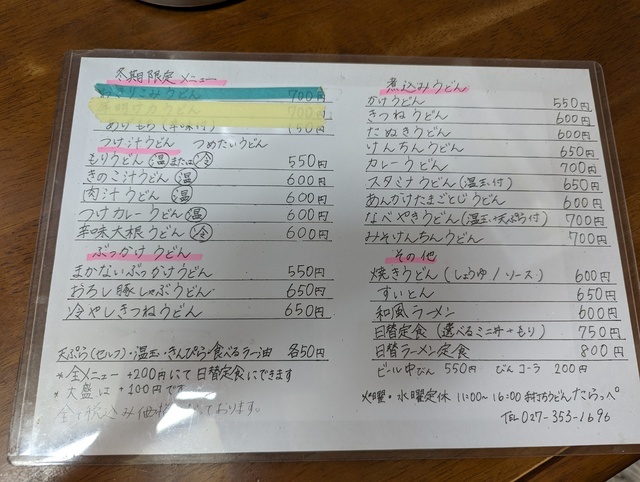 冬期限定メニュー
おきりこみうどん 700円
700円
つけ汁うどん つめたいうどん
もりうどん 温 または 冷 550円
きのこ汁うどん 温 600円
肉汁うどん 温 600円
つけカレーうどん 温 600円
辛味大根うどん 冷 600円
ぶっかけうどん
まかないぶっかけうどん 550円
おろし豚しゃぶうどん 650円
冷やしきつねうどん 650円
天ぷら(セルフ)・温玉・きんぴら・食べるラー油 各50円
*全メニュー +200円にて日替定食にできます
*大盛は +100円です
煮込みうどん
かけうどん 550円
きつねうどん 600円
たぬきうどん 600円
けんちんうどん 650円
カレーうどん 700円
スタミナうどん(温玉付) 650円
あんかけたまごとじうどん 600円
なべやきうどん(温玉・天ぷら付) 700円
みそけんちんうどん 700円
その他
焼きうどん(しょうゆ/ソース) 600円
すいとん 650円
和風ラーメン 600円
日替定食(選べるミニ丼+もり) 750円
日替ラーメン定食 800円
ビール中びん 550円 びんコーラ 200円
火曜・水曜定休 11:00~16:00 手打ちうどんたらっぺ
TEL 027-353-1696